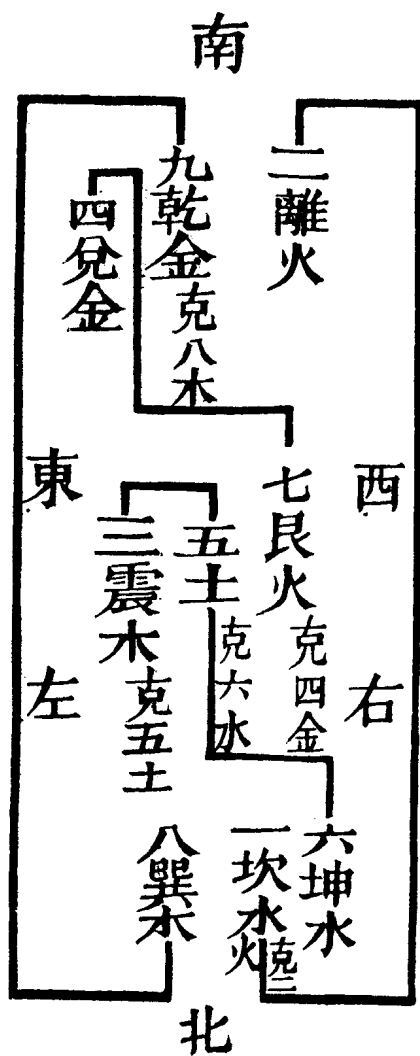 南
二離火
九乾金克八木
四兌金
西
東
七艮火克四金
五土克六水
三震木克五土
右
左
六坤水
一坎水克二火
八巽木
北